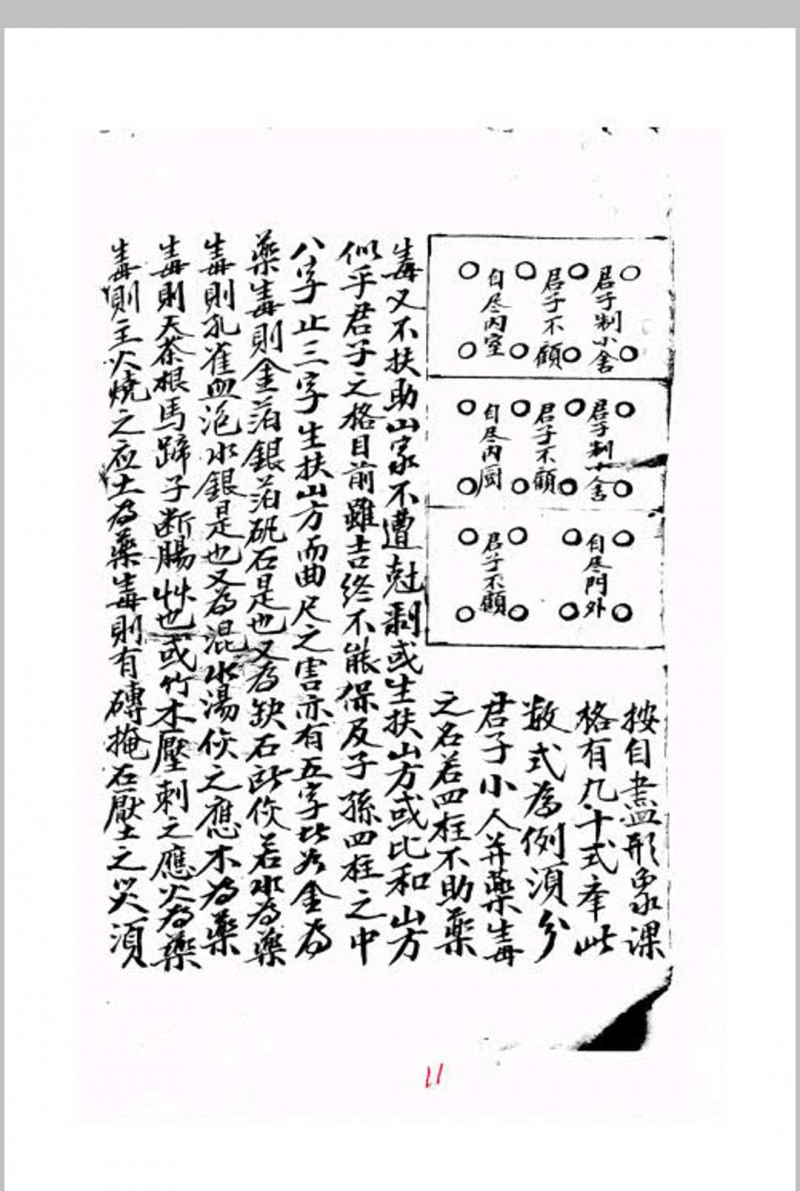 君子制小舍
君子不顧
自尽內室
君子制小舍
君子不顧
自尽內厨
自尽門外
君子不顧
按自盡形象课
格有几十式奉此
数式為例須分
君子小人并藥毒
之名若四柱不助藥
毒又不扶助山家不遭尅剥或生扶山方或比和山方
似乎君子之格目前雖吉終不能保及子孫四柱之中
八字止三字生扶山方而曲尺之害亦有五字比劣金為
藥毒則金箔銀箔砒石是也又為缺石所傚若水為藥
毒則孔雀血泡水銀是也又為混水湯傚之應木為藥
毒則天茶根馬蹄子断腸艸也或竹木壓刺之應火為藥
毒則主火燒之应土為藥毒則有磚掩石壓土之災須
11